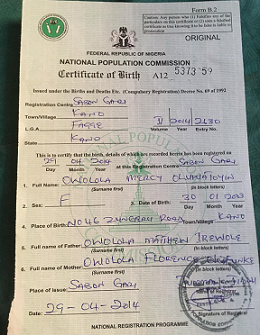 Form B.2
Caution: Any person who (1) Falsifies any of the
particulars on this certificate or (2) uses a falsified
certificate as true, knowing it to be false is liable to
prosecution
ORIGINAL
FEDERAL REPUBLIC OF NIGERIA
NATIONAL POPULATION COMMISSION
Certificate of Birth A12
Issued under the Births and Deaths Etc. (Compulsory Registration) Decree No. 69 of 1992
Registration Centre SABON GARI
Town/Village KANO
L.G.A. FAGGE Volume Year Entry No.
State KANO
This is to certify that the birth, details of which are recorded herein has been registered on
29 04 2014 at SABON GARI
1. Full Name: OWOLOLA MERCY
(Surname first) (in block letters)
2. Sex: F 3. Date of Birth: 30 01 2013
4. Place of Birth NO 46 ROAD Town/Village KANO
5. Full name of Father OWOLOLA MATTHEW
(Surname first) (in block letters)
6. Full name of Mother OWOLOLA FLORENCE
(Surname first) (in block letters)
Place of Issue SABON GARI
29-04-2014
Date
Signature of Registrar
NATIONAL REGISTRATION PROGRAMME